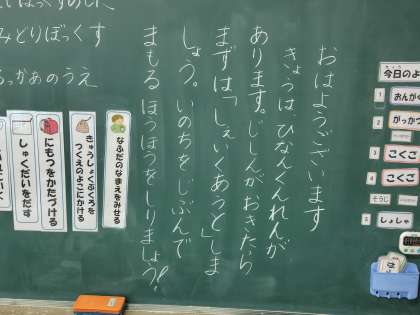 今日のよ
1 おんが
2 がっかつ
3 こくご
4 こくご
そうじ
5 しょしゃ
おはようございます
きょうは、ひなんくんれんが
あります。じしんがおきたら
まずは「しぇいくあうと」しま
しょう。いのちを、じぶんで
まもる ほうほうをしりましょう。
なふだのなまえをみせる
きゅうしょくぶくろを
つくえのよこにかける
にもつをかたづける
しゅくだいをだす
みどりぼっくす
らっかあのうえ